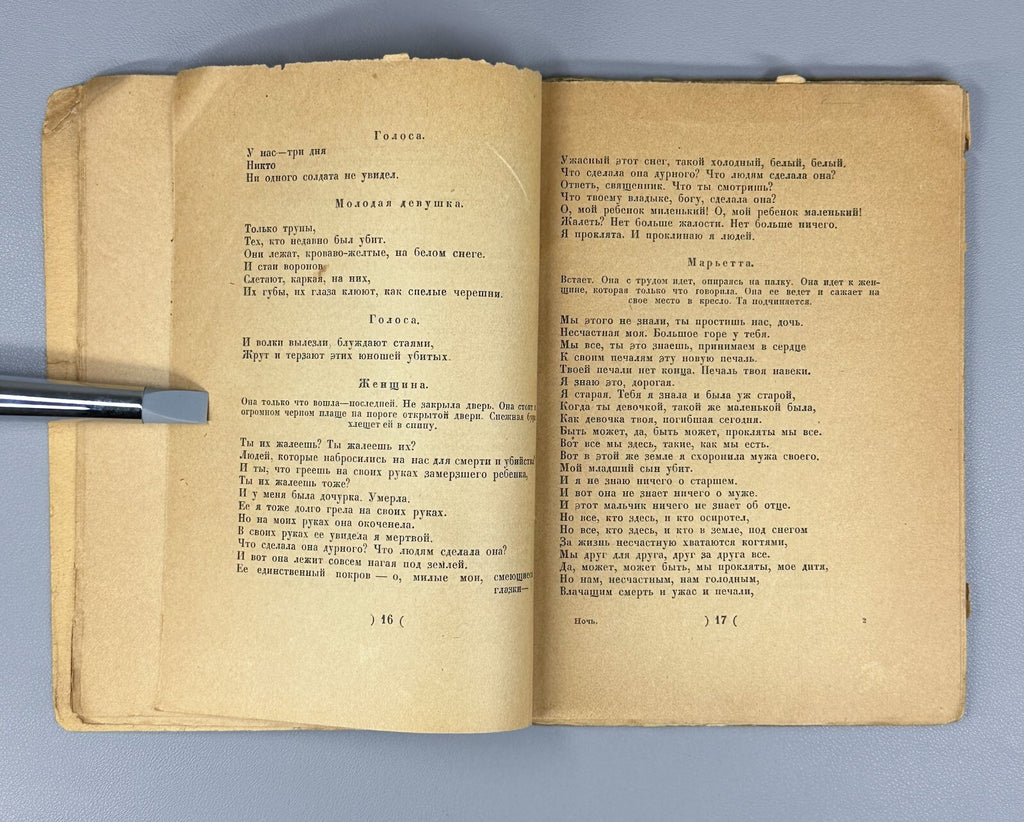 Голоса.
У нас—три дня
Никто
Ни одного солдата не увидел.
Молодая девушка.
Только трупы,
Тех, кто недавно был убит.
Они лежат, кроваво-желтые, на белом снеге.
И стаи воронов
Слетают, каркая, на них,
Их губы, их глаза клюют, как спелые черешни.
Голоса.
И волки вылезли, блуждают стаями,
Жрут и терзают этих юношей убитых.
Женщина.
Она только что вошла—последней. Не закрыла дверь. Она стоит в
огромном черном плаще на пороге открытой двери. Снежная
хлещет ей в спину.
Ты их жалеешь? Ты жалеешь их?
Людей, которые набросились на нас для смерти и убийства?
И ты, что греешь на своих руках замерзшего ребенка,
Ты их жалеешь тоже?
И у меня была дочурка. Умерла.
Ее я тоже долго грела на своих руках.
Но на моих руках она окоченела.
В своих руках ее увидела я мертвой.
Что сделала она дурного? Что людям сделала она?
И вот она лежит совсем нагая под землей.
Ее единственный покров — о, милые мои, смеющиеся
глазки—
) 16 (
Ужасный этот снег, такой холодный, белый, белый.
Что сделала она дурного? Что людям сделала она?
Ответь, священник. Что ты смотришь?
Что твоему владыке, богу, сделала она?
О, мой ребенок миленький! О, мой ребенок маленький!
Жалеть? Нет больше жалости. Нет больше ничего.
Я проклята. И проклинаю я людей.
Марьетта.
Встает. Она с трудом идет, опираясь на палку. Она идет к жен-
щине, которая только что говорила. Она ее ведет и сажает на
свое место в кресло. Та подчиняется.
Мы этого не знали, ты простишь нас, дочь.
Несчастная моя. Большое горе у тебя.
Мы все, ты это знаешь, принимаем в сердце
К своим печалям эту новую печаль.
Твоей печали нет конца. Печаль твоя навеки.
Я знаю это, дорогая.
Я старая. Тебя я знала и была уж старой,
Когда ты девочкой, такой же маленькой была,
Как девочка твоя, погибшая сегодня.
Быть может, да, быть может, прокляты мы все.
Вот все мы здесь, такие, как мы есть.
Вот в этой же земле я схоронила мужа своего.
Мой младший сын убит.
И я не знаю ничего о старшем.
И вот она не знает ничего о муже.
И этот мальчик ничего не знает об отце.
Но все, кто здесь, и кто осиротел,
Но все, кто здесь, и кто в земле, под снегом
За жизнь несчастную хватаются когтями,
Мы друг для друга, друг за друга все.
Да, может, может быть, мы прокляты, мое дитя,
Но нам, несчастным, нам голодным,
Влачащим смерть и ужас и печали,
Ночь.
) 17 (
2